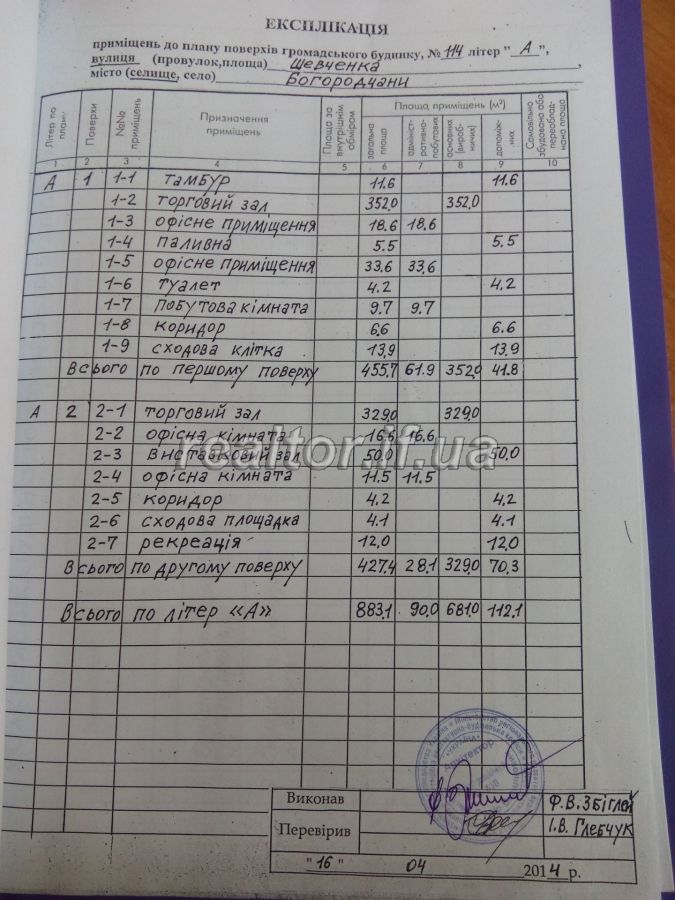 ЕКСПЛІКАЦІЯ
приміщень до плану поверхів громадського будинку, № 114 літер " А ",
вулиця (провулок, площа) Шевченка ,
місто (селище, село) Богородчани
Літер по плану Поверхи №№ приміщень Призначення приміщень Площа за внутрішнім обміром Площа, приміщень (м²) Самовільно збудована або переобладнана площа
загальна площа адміністративно-побутових основних (виробничих) допоміжних
1 2 3 4 5 6 7 8 9 10
А 1 1-1 тамбур 11.6 11.6
1-2 торговий зал 352,0 352,0
1-3 офісне приміщення 18.6 18.6
1-4 паливна 5.5 5.5
1-5 офісне приміщення 33,6 33,6
1-6 туалет 4.2 4.2
1-7 побутова кімната 9.7 9.7
1-8 коридор 6,6 6.6
1-9 сходова клітка 13,9 13,9
Всього по першому поверху 455,7 61.9 352,0 41.8
А 2 2-1 торговий зал 329,0 329,0
2-2 офісна кімната 16,6 16,6
2-3 виставковий зал 50,0 50,0
2-4 офісна кімната 11.5 11.5
2-5 коридор 4,2 4,2
2-6 сходова площадка 4.1 4.1
2-7 рекреація 12,0 12,0
Всього по другому поверху 427,4 28.1 329,0 70,3
Всього по літер «А» 883,1 90,0 681,0 112,1
realtor.if.ua
Архітектор
Виконав Ф.В.Збіглей
Перевірив І.В. Глебчук
"16" 04 2014 р.